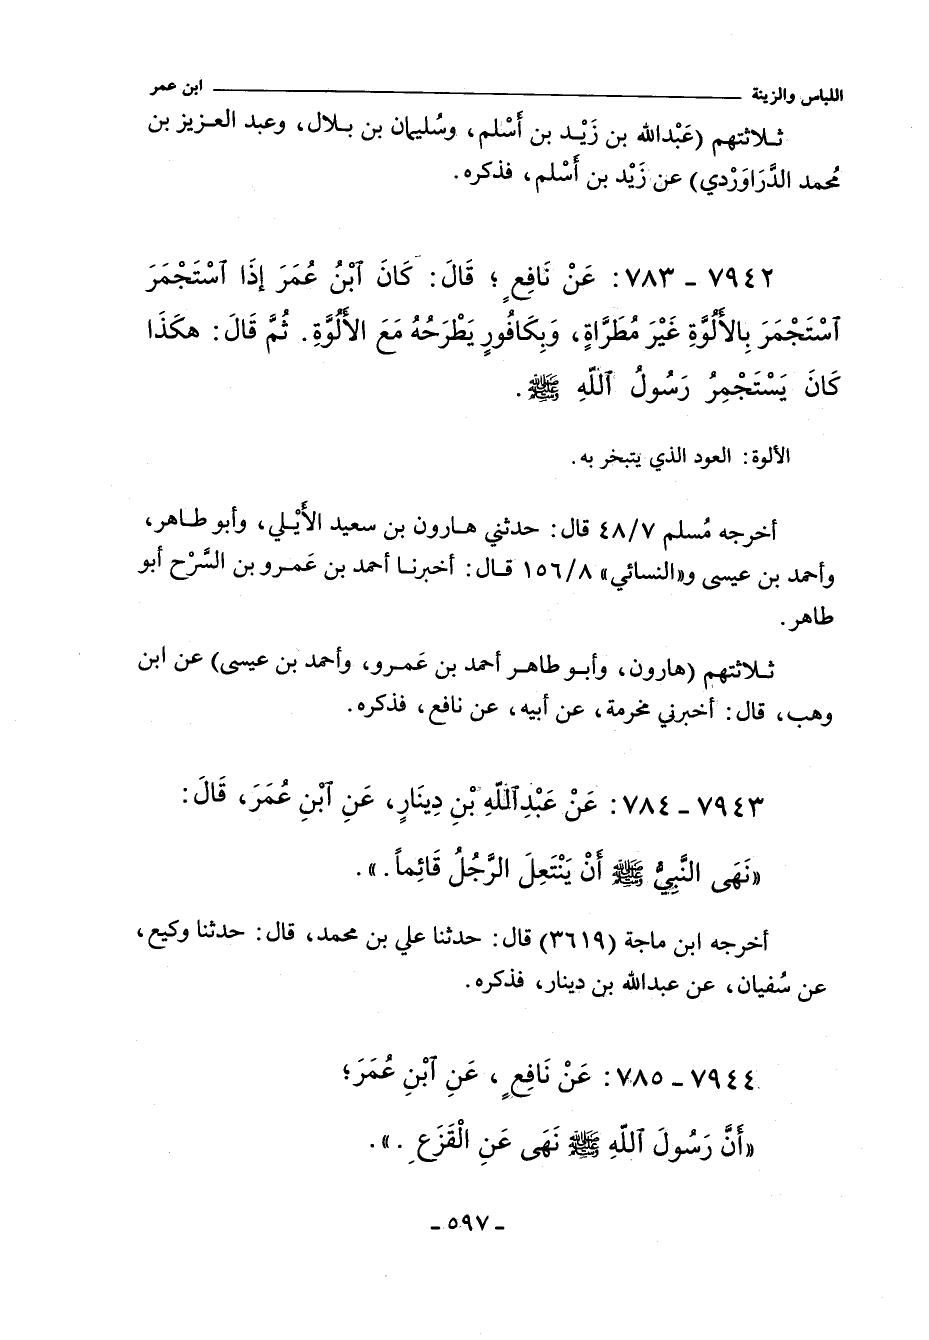 اللباس والزينة ــــــــــ ابن عمر
ثـلاثتهم (عَبْدالله بن زَيْـد بن أَسْلم، وسُليمان بن بـلال، وعبد العـزيز بن
مُحمد الدَّرَاوَرْدي) عن زَيْد بن أَسْلم، فذكره.
٧٩٤٢ ـ ٧٨٣: عَنْ نَافِعٍ ؛ قَالَ: كَانَ ٱبْنُ عُمَرَ إِذَا ٱسْتَجْمَرَ
ٱسْتَجْمَرَ بِالأَلُوَّةِ غَيْرَ مُطَرَّاةٍ، وَبِكَافُورٍ يَطْرَحُهُ مَعَ الأَلُوَّةِ. ثُمَّ قَالَ: هكَذَا
كَانَ يَسْتَجْمِرُ رَسُولُ ٱللّهِ ﷺ.
الألوة: العود الذي يتبخر به.
أخرجه مُسلم ٤٨/٧ قال: حدثني هـارون بن سعيد الأَيْـلي، وأبو طـاهر،
وأحمد بن عيسى و«النسائي» ١٥٦/٨ قـال: أخبرنـا أحمد بن عَمـرو بن السَّرْح أبو
طاهر.
ثـلاثتهم (هارون، وأبـو طاهـر أحمد بن عَمـرو، وأحمد بن عيسى) عن ابن
وهب، قال: أخبرني مخرمة، عن أبيه، عن نافع، فذكره.
٧٩٤٣ ـ ٧٨٤: عَنْ عَبْدِٱللّهِ بْنِ دِينَارٍ، عَنِ ٱبْنِ عُمَرَ، قَالَ:
«نَهَى النَّبِيُّ ﷺ أَنْ يَنْتَعِلَ الرَّجُلُ قَائِماً.».
أخرجه ابن ماجة (٣٦١٩) قال: حدثنا علي بن محمد، قال: حدثنا وكيع،
عن سُفيان، عن عبدالله بن دينار، فذكره.
٧٩٤٤ ـ ٧٨٥: عَنْ نَافِعٍ ، عَنِ ٱبْنِ عُمَرَ؛
«أَنَّ رَسُولَ ٱللّهِ ﷺ نَهَى عَنِ الْقَزَعِ .».
ـ ٥٩٧ ـ